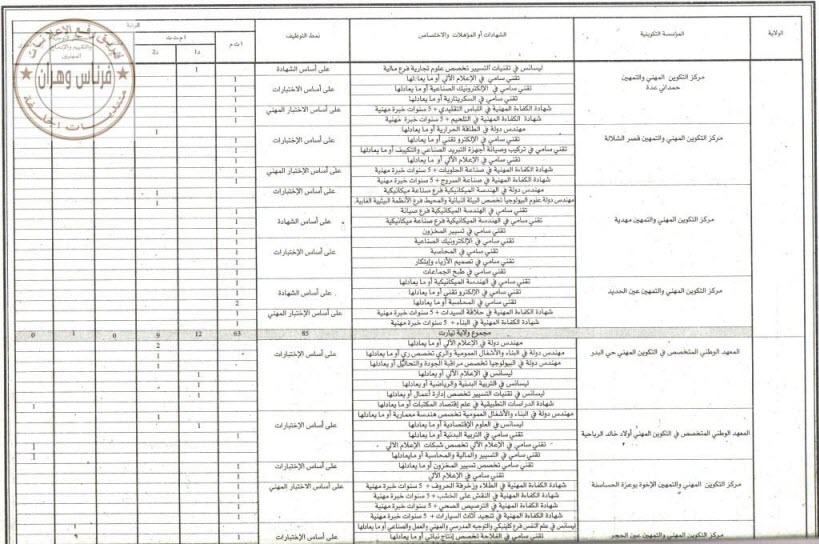 الولاية المؤسسة التكوينية الشهادات أو المؤهلات والاختصاص نمط التوظيف ا ت م ا م ت ت د1 د2 الرتبة
ليسانس في تقنيات التسيير تخصص علوم تجارية فرع مالية على أساس الشهادة 1
مركز التكوين المهني والتمهين حمداني عدة
تقني سامي في الإعلام الآلي أو ما يعادلها 1
تقني سامي في الإلكترونيك الصناعية أو ما يعادلها على أساس الاختبارات 1
تقني سامي في السكريتارية أو ما يعادلها 1
شهادة الكفاءة المهنية في اللباس التقليدي + 5 سنوات خبرة مهنية على أساس الاختبار المهني 1
شهادة الكفاءة المهنية في التلحيم + 5 سنوات خبرة مهنية 1
مركز التكوين المهني والتمهين قصر الشلالة
مهندس دولة في الطاقة الحرارية أو ما يعادلها 1
تقني سامي في الإلكترو تقني أو ما يعادلها على أساس الإختبارات 1
تقني سامي في تركيب وصيانة أجهزة التبريد الصناعي والتكييف أو ما يعادلها 1
تقني سامي في الإعلام الآلي أو ما يعادلها 1
شهادة الكفاءة المهنية في صناعة الحلويات + 5 سنوات خبرة مهنية على أساس الإختبار المهني 1
شهادة الكفاءة المهنية في صناعة السروج + 5 سنوات خبرة مهنية 1
مركز التكوين المهني والتمهين مهدية
مهندس دولة في الهندسة الميكانيكية فرع صناعة ميكانيكية على أساس الإختبارات 1
مهندس دولة علوم البيولوجيا تخصص البيئة النباتية والمحيط فرع الأنظمة البيئية الغابية. 1
تقني سامي في الهندسة الميكانيكية فرع صيانة 1
تقني سامي في الهندسة الميكانيكية فرع صناعة ميكانيكية على أساس الشهادة 1
تقني سامي في تسيير المخزون 1
تقني سامي في الإلكترونيك الصناعية 1
تقني سامي في المحاسبة على أساس الإختبارات 1
تقني سامي في تصميم الأزياء وإبتكار 1
تقني سامي في طبخ الجماعات 1
مركز التكوين المهني والتمهين عين الحديد
تقني سامي في الهندسة الميكانيكية أو ما يعادلها 1
تقني سامي في الإلكترو تقني أو ما يعادلها على أساس الشهادة 1
تقني سامي في المحاسبة أو ما يعادلها 2
شهادة الكفاءة المهنية في حلاقة السيدات + 5 سنوات خبرة مهنية على أساس الإختبار المهني 1
شهادة الكفاءة المهنية في البناء + 5 سنوات خبرة مهنية 1
مجموع ولاية تيارت 85 63 12 9 0 1 0
المعهد الوطني المتخصص في التكوين المهني حي البدر
مهندس دولة في الإعلام الآلي أو ما يعادلها 2
مهندس دولة في البناء والأشغال العمومية والري تخصص ري أو ما يعادلها على أساس الإختبارات 1
مهندس دولة في البيولوجيا تخصص مراقبة الجودة والتحاليل أو يعادلها 1
ليسانس في الإعلام الآلي أو يعادلها 1
ليسانس في التربية البدنية والرياضية أو يعادلها 1
ليسانس في تقنيات التسيير تخصص إدارة أعمال أو يعادلها 1
شهادة الدراسات التطبيقية في علم إقتصاد المكتبات أو ما يعادلها 1
المعهد الوطني المتخصص في التكوين المهني أولاد خالد الرباحية
مهندس دولة في البناء والأشغال العمومية تخصص هندسة معمارية أو ما يعادلها 1
ليسانس في العلوم الإقتصادية أو ما يعادلها على أساس الإختبارات 1
تقني سامي في التربية البدنية أو ما يعادلها
تقني سامي في الإعلام الآلي تخصص شبكات الإعلام الآلي 1
تقني سامي في التسيير والمالية والمحاسبة أو مايعادلها 1
مركز التكوين المهني والتمهين الإخوة بوعزة الحساسنة
تقني سامي تخصص تسيير المخزون أو ما يعادلها على أساس الإختبارات 1
تقني سامي في الإعلام الآلي 1
شهادة الكفاءة المهنية في الطلاء وزخرفة الحروف + 5 سنوات خبرة مهنية على أساس الاختبار المهني 1
شهادة الكفاءة المهنية في النقش على الخشب + 5 سنوات خبرة مهنية 1
شهادة الكفاءة المهنية في الترصيص الصحي + 5 سنوات خبرة مهنية 1
شهادة الكفاءة المهنية في تنجيد أثاث السيارات + 5 سنوات خبرة مهنية 1
ليسانس في علم النفس فرع كلينيكي والتوجيه المدرسي والمهني والعمل والصناعي أو ما يعادلها 1
مركز التكوين المهني والتمهين عين الحجر تقني سامي في الفلاحة تخصص إنتاج نباتي أو ما يعادلها على أساس الإختبارات
فريق رفع الإعلانات
والتقييم والإدماج المهنيين
فرناس وهران
منتديات الجلفة